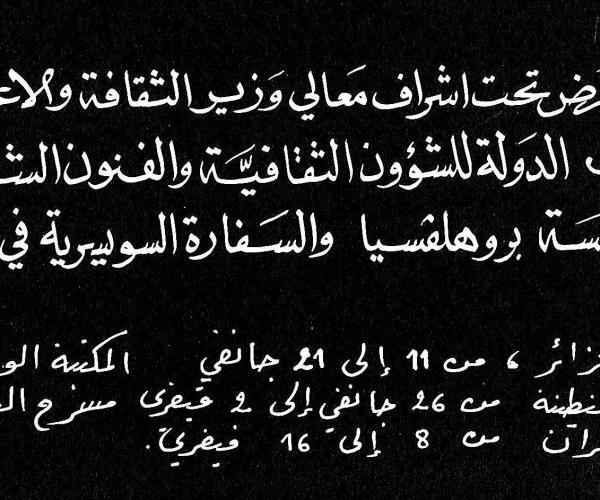 رض تحت اشراف مَعالي وَزير الثقافة والاع
الدَولة للشؤون الثقافيَّة والفنون الشـ
ـسَة بروهلڤسيا والسَفارة السويسرية في
ـزائر ، من 11 إلى 21 جانفي المكتبة الو
ـنطينة من 26 جانفي إلى 2 فيفري مسرح الـ
ـران من 8 إلى 16 فيفري.